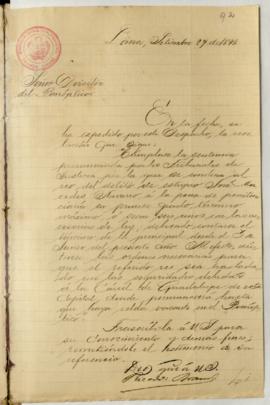 Lima, Setiembre 27 de 1892
Señor Director
del Panóptico
En la fecha, se
ha expedido por este Despacho, la reso
lución que sigue:
"Cúmplase la sentencia
pronunciada por los Tribunales de
Justicia por la que se condena al
reo del delito de estupro José
Moreno á la pena de peniten
ciaría en grado, término
máximo, ó sean años, con las
accesorias de ley, debiendo contarse el
término de la principal desde el
de Junio del presente año. Al efecto, díc
tense las órdenes necesarias para
que el referido reo sea trasladado
con las seguridades debidas
á la Cárcel de Guadalupe de esta
Capital, donde permanecerá hasta
que haya celda vacante en el Panóp
tico".
Trascríbola á US. para
su conocimiento y demás fines,
remitiéndole el testimonio de su
referencia.
Dios gue. á US.